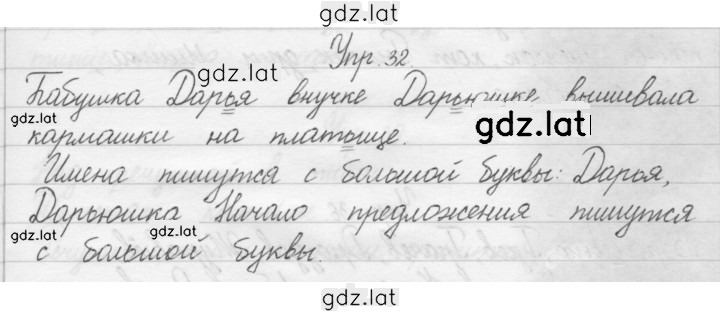 gdz.lat
Упр. 32.
gdz.lat
Бабушка Дарья внучке Дарьюшке вышивала
gdz.lat
gdz.lat
кармашки на платьице.
Имена пишутся с большой буквы: Дарья,
Дарьюшка Начало предложения пишутся
gdz.lat
gdz.lat
с большой буквы.
gdz.lat